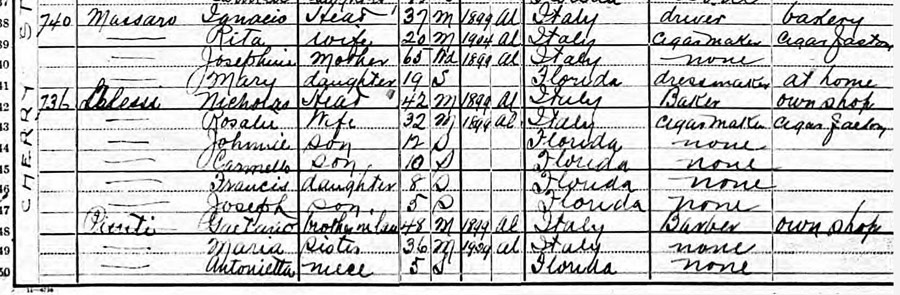 740 Massaro Ignacio Head 37 M 1899 Al Italy driver bakery
39 — Rita wife 20 M 1904 Al Italy cigarmaker cigar factory
40 — Josephine Mother 65 Wd 1899 Al Italy none
41 — Mary daughter 19 S Florida dressmaker at home
42 736 Nicholas Head 42 M 1899 Al Italy Baker own shop
43 — Rosalie Wife 32 M 1899 Al Italy cigarmaker cigar factory
44 — Johnnie son 12 S Florida none
45 — Carmello son 10 S Florida none
46 — Francis daughter 8 S Florida none
47 — Joseph son 5 S Florida none
48 Gaetano brother in law 48 M 1899 Al Italy Barber own shop
49 — Maria sister 36 M 1904 al Italy none
50 — Antonietta niece 5 S Florida none
CHERRY ST